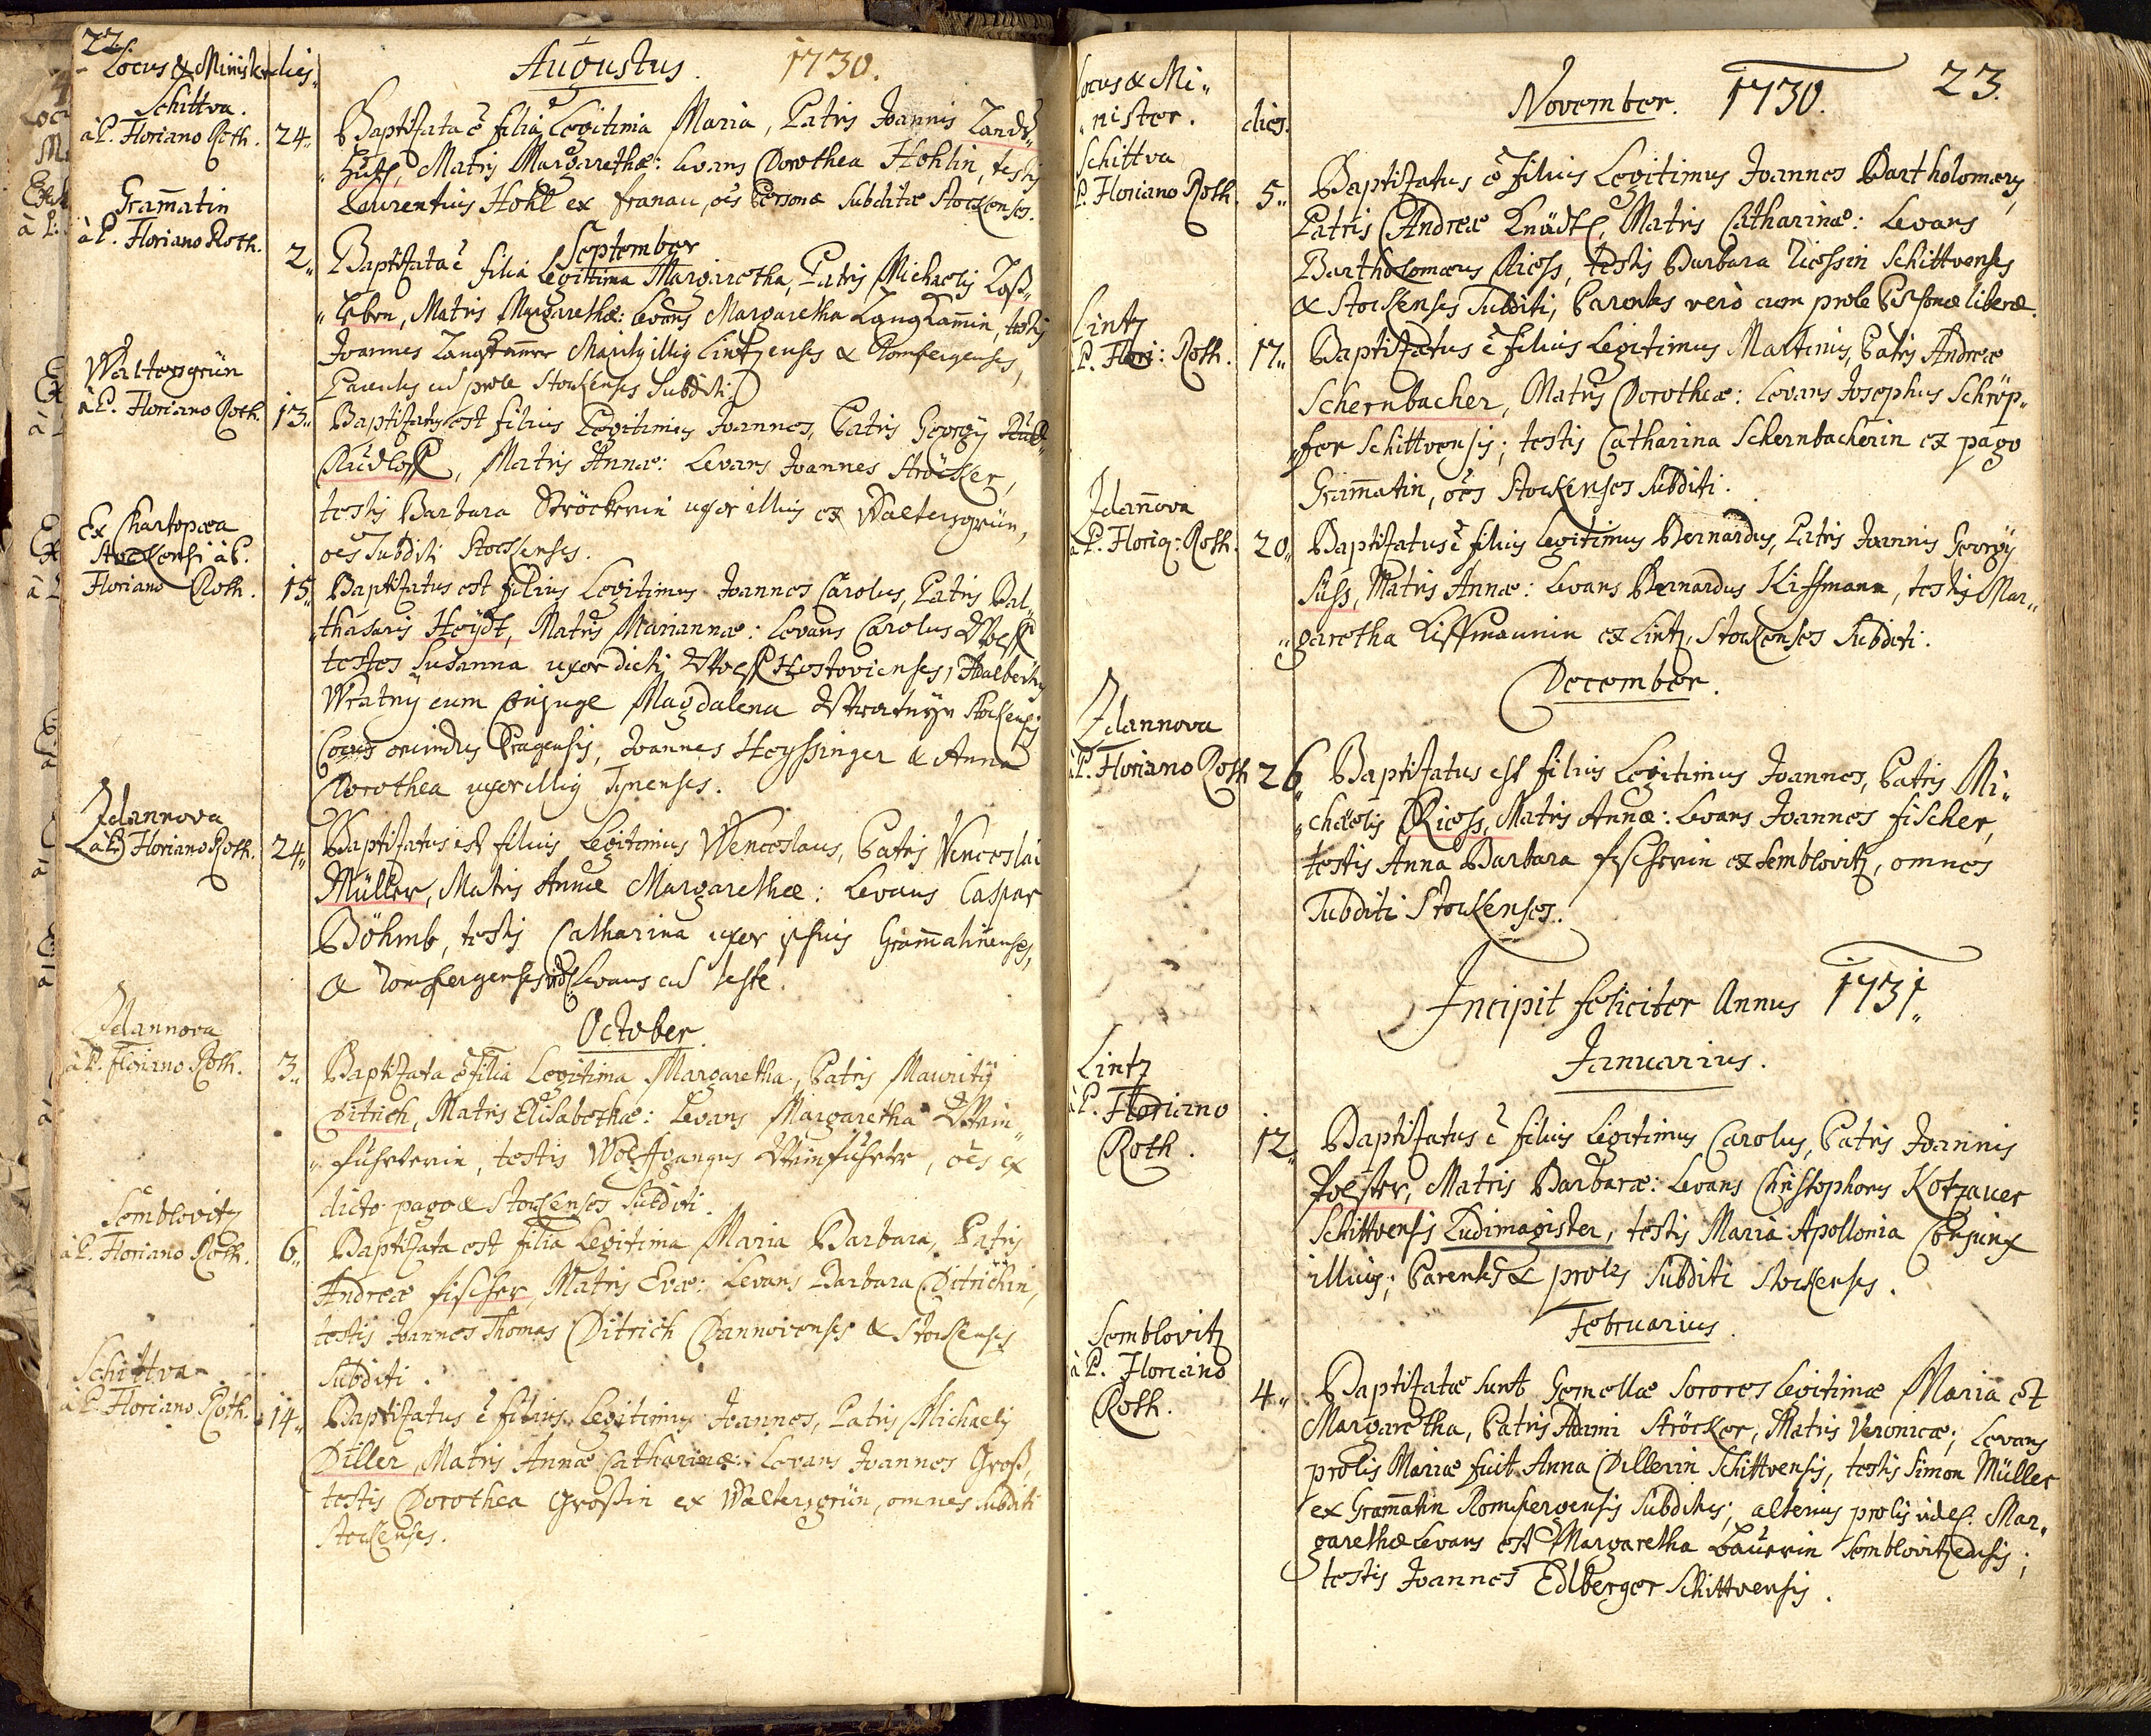 22.
Locus & Minister dies
Augustus. 1730.
Schittva.
à P. Floriano Roth. 24.
Baptizata ē filia Legitima Maria, Patris Joannis Lands„
„hutt, Matris Margarethæ: Levans Dorothea Hohlin, testis
Laurentius Hohl ex Franau, oēs Personæ Subditæ Stockenses.
September
Gram̄atin
à P. Floriano Roth. 2.
Baptizata ē filia Legitima Margaretha, Patris Michaelis
Matris Margarethæ: Levans Margaretha Langham̄in, testis
Joannes Lintzenses & Romsergenses,
Parentes cū prole Stockenses Subditi.
Waltersgrün
à P. Floriano Roth. 13.
Baptizatus est filius Legitimus Joannes, Patris Georgÿ
Rudloff, Matris Annæ: Levans Joannes Ströcker,
testis Barbara Ströckerin uxor illius ex Waltersgrün,
oēs Subditi Stockenses.
Ex Chartopæa
Stockensi à P.
Floriano Roth. 15.
Baptizatus est filius Legitimus Joannes Carolus, Patris Bal„
„thasaris Heÿdt, Matris Mariannæ: Levans Carolus Wolff
testes Susanna uxor dicti Wolff Hostovienses, Adalbertus
Wratnÿ cum Conjuge Magdalena Wratnÿn Stockensis
Cocus oriundus Pragensis, Joannes Heyssinger & Anna
Dorothea uxor illius Tÿnenses.
Zdannova
à P. Floriano Roth. 24.
Baptizatus est filius Legitimus Wenceslaus, Patris Venceslai
Müller, Matris Annæ Margarethæ: Levans Caspar
Böhmb, testis Catharina uxor ipsius Gram̄atinenses,
& Romsergenses videl. Levans cū teste.
October.
Zdannova
à P. Floriano Roth. 3.
Baptizata ē filia Legitima Margaretha, Patris Mauritÿ
Ditrich, Matris Elisabethæ: Levans Margaretha Wein„
„führerin, testis Wolffgangus Weinführer, oēs ex
dicto pago & Stockenses Subditi.
Semblovitz
à P. Floriano Roth. 6.
Baptizata est filia Legitima Maria Barbara, Patris
Andreæ Fischer, Matris Evæ: Levans Barbara Ditrichin,
testis Joannes Thomas Ditrich Dannovenses & Stockenses
Subditi.
Schittva
à P. Floriano Roth. 14.
Baptizatus ē filius Legitimus Joannes, Patris Michaelis
Diller, Matris Annæ Catharinæ: Levans Joannes Groß,
testis Dorothea Großin ex Waltersgrün, omnes Subditi
Stockenses.
23.
Locus & Mi„
„nister. dies.
November. 1730.
Schittva
P. Floriano Roth. 5.
Baptizatus ē filius Legitimus Joannes Bartholomæus,
Patris Andreæ Knödtl, Matris Catharinæ: Levans
Bartholomæus Riess, testis Barbara Riessin Schittvenses
& Stockenses Subditi, Parentes verò cum prole Personæ liberæ.
Lintz
P. Flori: Roth. 17.
Baptizatus ē filius Legitimus Martinus, Patris Andreæ
Schernbacher, Matris Dorotheæ: Levans Josephus Schröp„
„fer Schittvensis; testis Catharina Schernbacherin ex pago
Gram̄atin, oēs Stockenses Subditi.
Zdan̄ova
à P. Floria: Roth. 20.
Baptizatus ē filius Legitimus Bernardus, Patris Joannis Georgÿ
Süss, Matris Annæ: Levans Bernardus Kiffmann, testis Mar„
„garetha Kiffmannin ex Lintz, Stockenses Subditi.
December.
Zdannova
à P. Floriano Roth 26.
Baptizatus est filius Legitimus Joannes, Patris Mi„
„chaelis Riess, Matris Annæ: Levans Joannes Fischer,
testis Anna Barbara Fischerin ex Semblovitz, omnes
Subditi Stockenses.
Incipit feliciter Annus 1731.
Januarius.
Lintz
à P. Floriano
Roth. 12.
Baptizatus ē filius Legitimus Carolus, Patris Joannis
Foester, Matris Barbaræ: Levans Christophorus Kotzauer
Schittvensis Ludimagister, testis Maria Apollonia Conjunx
illius; Parentes & proles Subditi Stockenses.
Februarius.
Semblovitz
à P. Floriano
Roth. 4.
Baptizatæ sunt Gemellæ Sorores Legitimæ Maria et
Margaretha, Patris Adami Ströcker, Matris Veronicæ; Levans
prolis Mariæ fuit Anna Dillerin Schittvensis, testis Simon Müller
ex Gram̄atin Romsergensis Subditus; alterius prolis videl. Mar„
garethæ Levans est Margaretha Bauerin Semblovitzensis;
testis Joannes Edlberger Schittvensis.